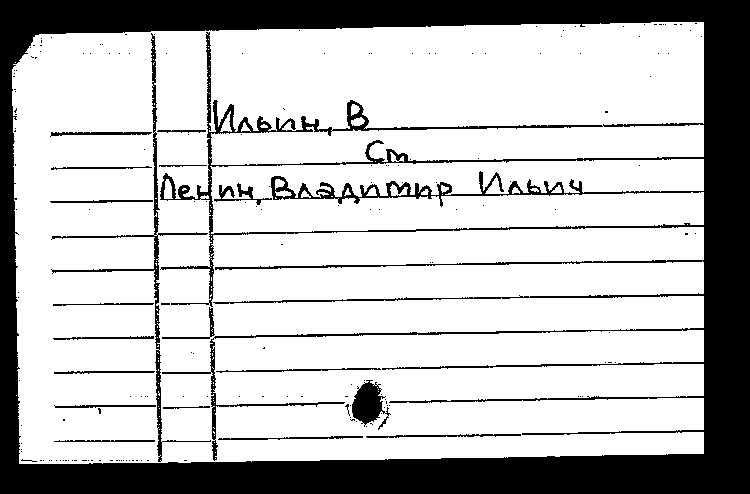 Ильин, В
Ст.
Ленин, Владимир Ильич